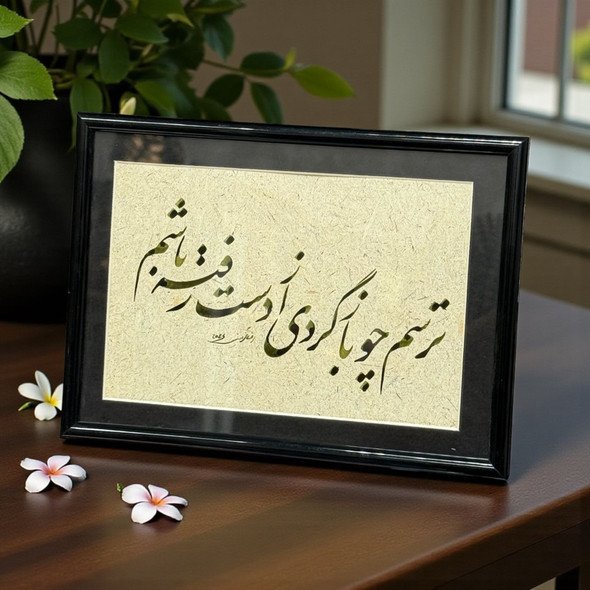 ترسم چو باز گردی از دست رفته باشم